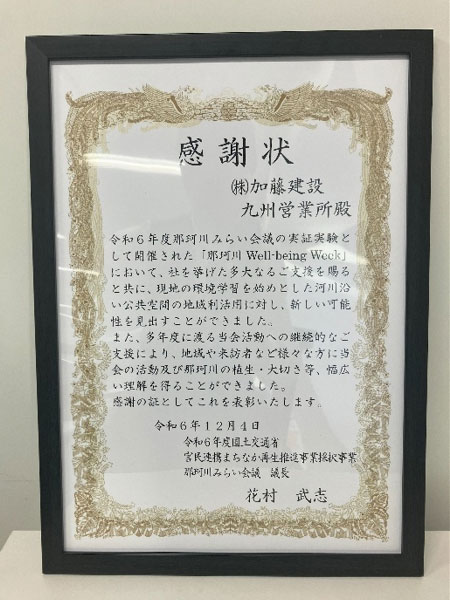 感謝状
㈱加藤建設
九州営業所殿
令和６年度那珂川みらい会議の実証実験と
して開催された「那珂川 Well-being Week」
において、社を挙げた多大なるご支援を賜る
と共に、現地の環境学習を始めとした河川沿
い公共空間の地域利活用に対し、新しい可能
性を見出すことができました。
また、多年度に渡る当会活動への継続的なご
支援により、地域や来訪者など様々な方に当
会の活動及び那珂川の植生・大切さ等、幅広
い理解を得ることができました。
感謝の証としてこれを表彰いたします。
令和６年１２月４日
令和６年度国土交通省
官民連携まちなか再生推進事業採択事業
那珂川みらい会議 議長
花村 武志